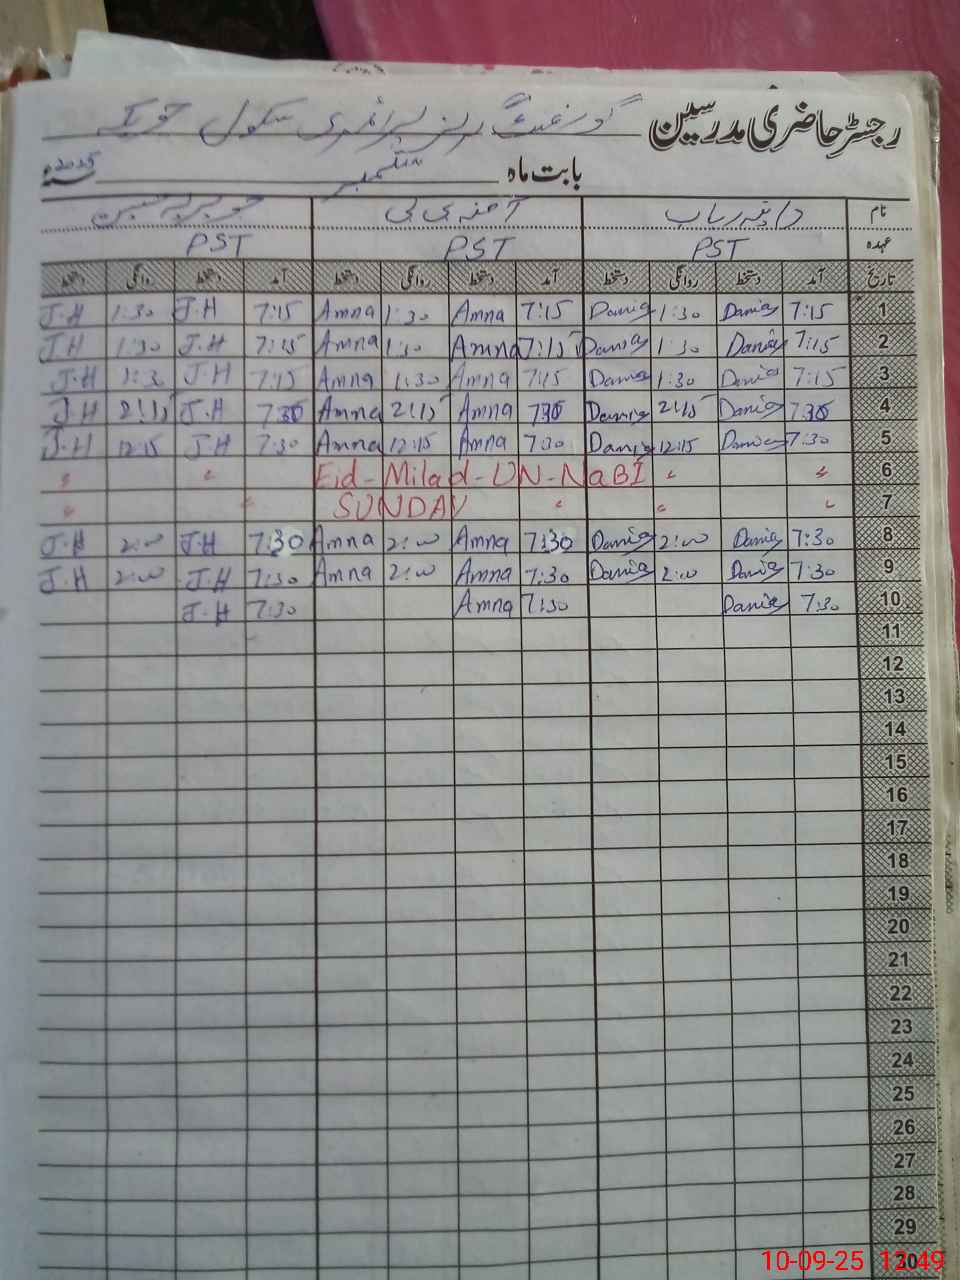 رجسٹر حاضری مدرسین گورنمنٹ پرائمری سکول
بابت ماہ ستمبر 2025ء
نام دانیہ رباب آمنہ بی بی جویریہ
عہدہ PST PST PST
تاریخ آمد دستخط روانگی دستخط آمد دستخط روانگی دستخط آمد دستخط روانگی دستخط
1 7:15 Dania 1:30 Dania 7:15 Amna 1:30 Amna 7:15 J.H 1:30 J.H
2 7:15 Dania 1:30 Dania 7:15 Amna 1:30 Amna 7:15 J.H 1:30 J.H
3 7:15 Dania 1:30 Dania 7:15 Amna 1:30 Amna 7:15 J.H 1:30 J.H
4 7:30 Dania 2:15 Dania 7:30 Amna 2:15 Amna 7:30 J.H 2:15 J.H
5 7:30 Dania 12:15 Dania 7:30 Amna 12:15 Amna 7:30 J.H 12:15 J.H
6 〃 〃 Eid-Milad-UN-NaBI 〃 〃
7 〃 〃 〃 SUNDAY 〃 〃
8 7:30 Dania 2:00 Dania 7:30 Amna 2:00 Amna 7:30 J.H 2:00 J.H
9 7:30 Dania 2:00 Dania 7:30 Amna 2:00 Amna 7:30 J.H 2:00 J.H
10 7:30 Dania 7:30 Amna 7:30 J.H
11
12
13
14
15
16
17
18
19
20
21
22
23
24
25
26
27
28
29
30
10-09-25 12:49